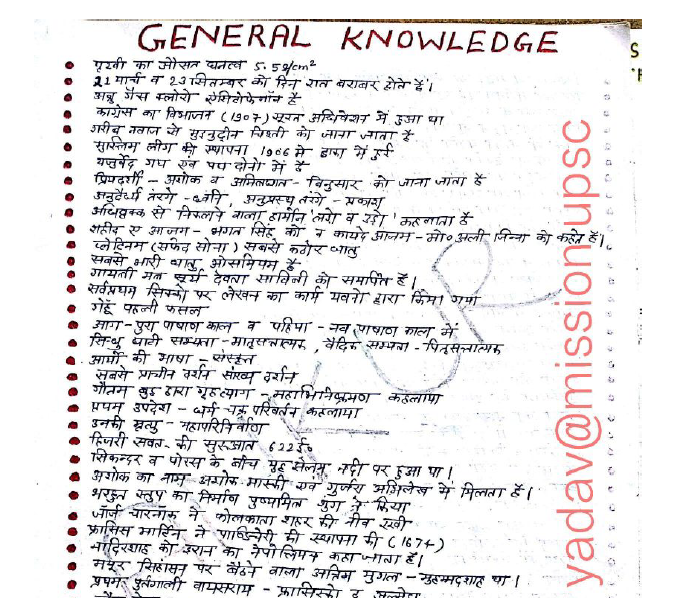 GENERAL KNOWLEDGE
पृथ्वी का औसत घनत्व 5.5g/cm²
21 मार्च व 23 सितम्बर को दिन रात बराबर होते हैं।
अश्रु गैस क्लोरो ऐसिटोफेनॉन है
कांग्रेस का विभाजन (1907) सूरत अधिवेशन में हुआ था
गरीब नवाज से मुइनुद्दीन चिश्ती को जाना जाता है
मुस्लिम लीग की स्थापना 1906 में ढाका में हुई
यजुर्वेद गद्य एवं पद्य दोनो में है
प्रियदर्शी - अशोक व अमित्रघात - बिन्दुसार को जाना जाता है
अनुदैर्ध्य तरंगे - ध्वनि, अनुप्रस्थ तरंगे - प्रकाश
अधिवृक्क से निकलने वाला हार्मोन 'लड़ो व उड़ो' कहलाता है
शहीद ए आजम - भगत सिंह को व कायदे आजम - मो० अली जिन्ना को कहते हैं।
प्लेटिनम (सफेद सोना) सबसे कठोर धातु
सबसे भारी धातु ओसमियम है
गायत्री मंत्र सूर्य देवता सावित्री को समर्पित है।
सर्वप्रथम सिक्को पर लेखन का कार्य यवनो द्वारा किया गया
गेहूँ पहली फसल
आग - पुरा पाषाण काल व पहिया - नव पाषाण काल में
सिन्धु घाटी सभ्यता - मातृसत्तात्मक, वैदिक सभ्यता - पितृसत्तात्मक
आर्यो की भाषा - संस्कृत
सबसे प्राचीन दर्शन सांख्य दर्शन
गौतम बुद्ध द्वारा गृहत्याग - महाभिनिष्क्रमण कहलाया
प्रथम उपदेश - धर्म चक्र परिवर्तन कहलाया
उनकी मृत्यु - महापरिनिर्वाण
हिजरी सवत की सुरुआत 622ई०
सिकन्दर व पोरस के बीच युद्ध झेलम नदी पर हुआ था।
अशोक का नाम अशोक मास्की एवं गुर्जरा अभिलेख में मिलता है।
भरहुत स्तुप का निर्माण पुष्यमित्र शुंग ने किया
जॉर्ज चारनॉक ने कोलकाता शहर की नीव रखी
फ्रांसिस मार्टिन ने पाण्डिचेरी की स्थापना की (1674)
नादिरशाह को ईरान का नेपोलियन कहा जाता है।
मयूर सिंहासन पर बैठने वाला अंतिम मुगल - मुहम्मदशाह था।
प्रथम पुर्तगाली वायसराय - फ्रांसिस्को द अल्मेडा
yadav@mission upsc